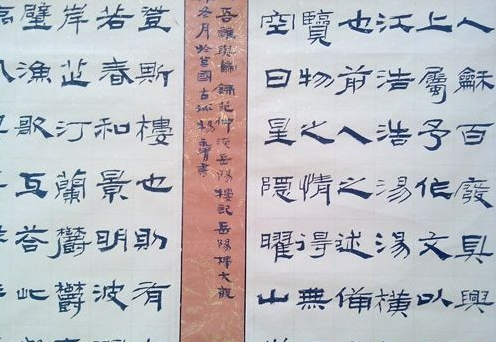 人龢百廢具興
上屬予作文以
江浩浩湯湯橫
也前人之述備
覽物之情得無
空日星隱曜山
吾誰與歸錄范仲淹岳陽樓記岳陽樓大觀
冬月於莒國古城楊書
登斯樓也則有
若春和景明波
岸芷汀蘭鬱鬱
璧漁歌互答此